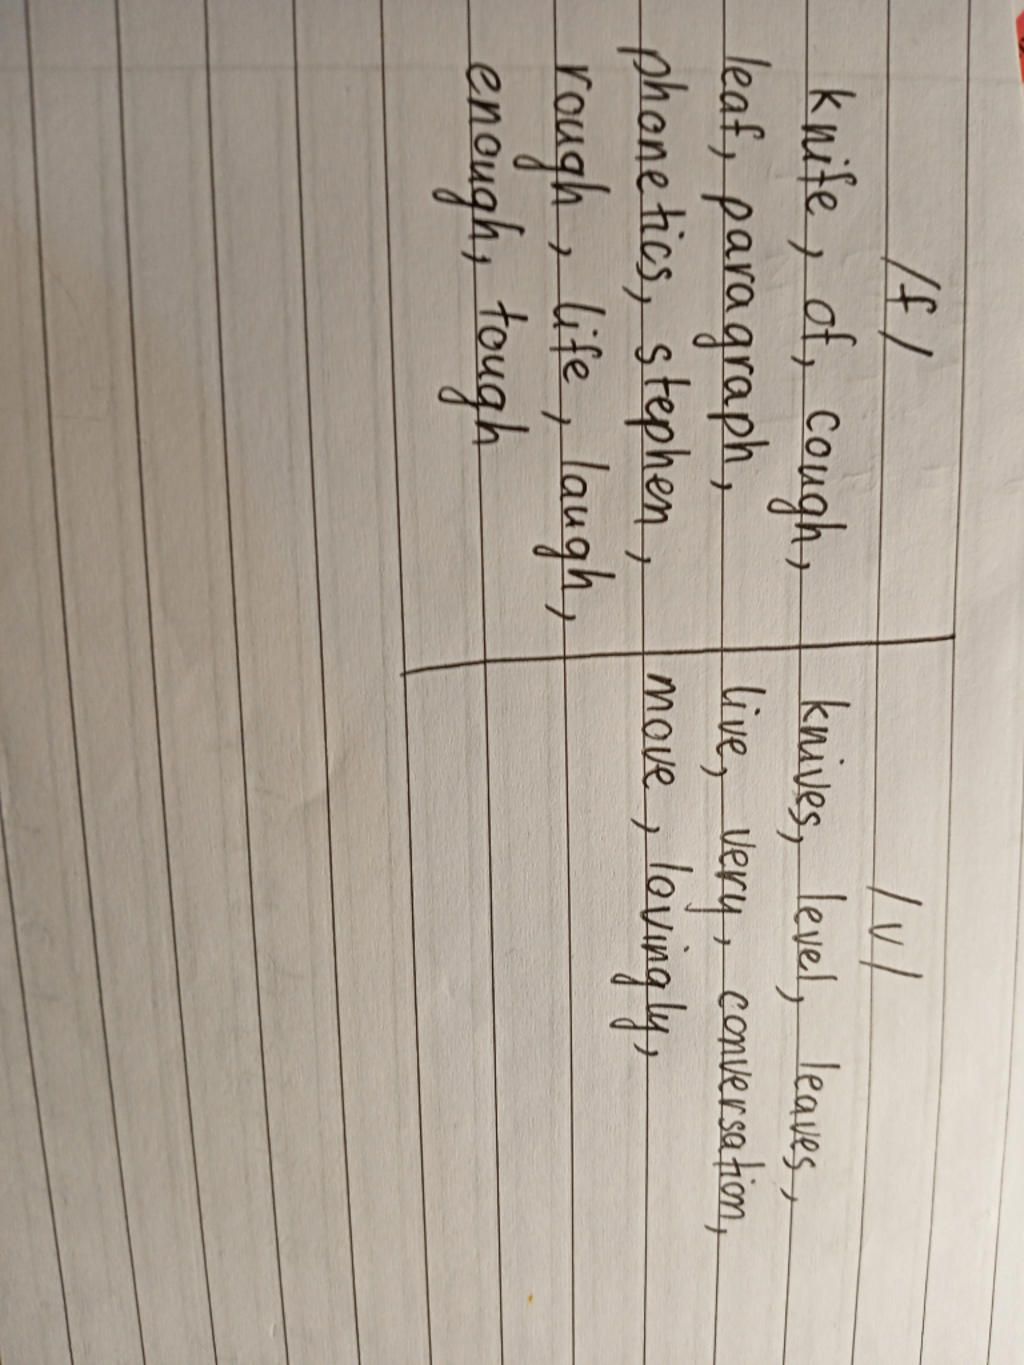 /f/ /v/
knife, of, cough, knives, level, leaves,
leaf, paragraph, live, very, conversation,
phonetics, stephen, move, lovingly,
rough, life, laugh,
enough, tough